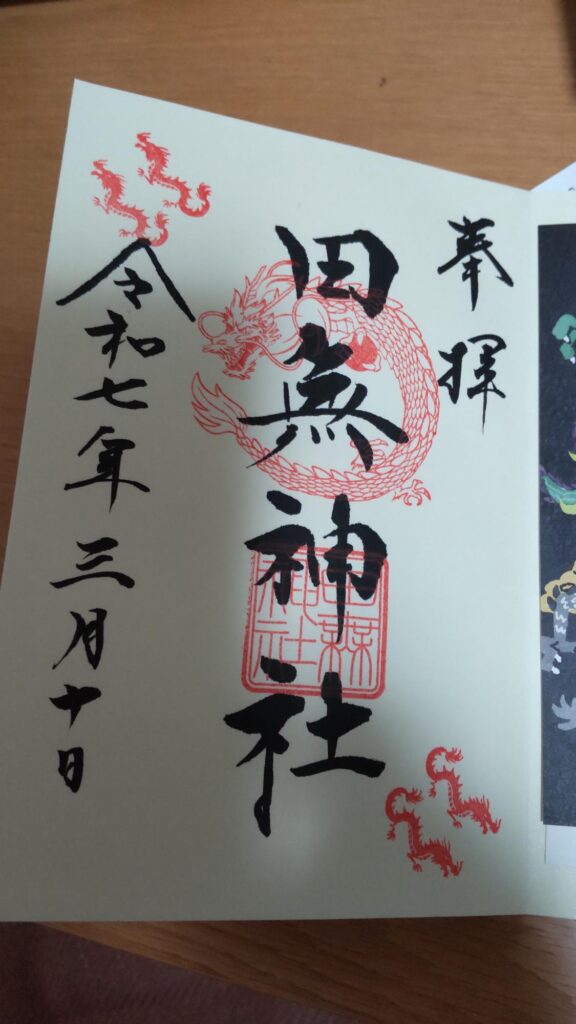 奉拝
田無神社
令和七年三月十日
田無神社